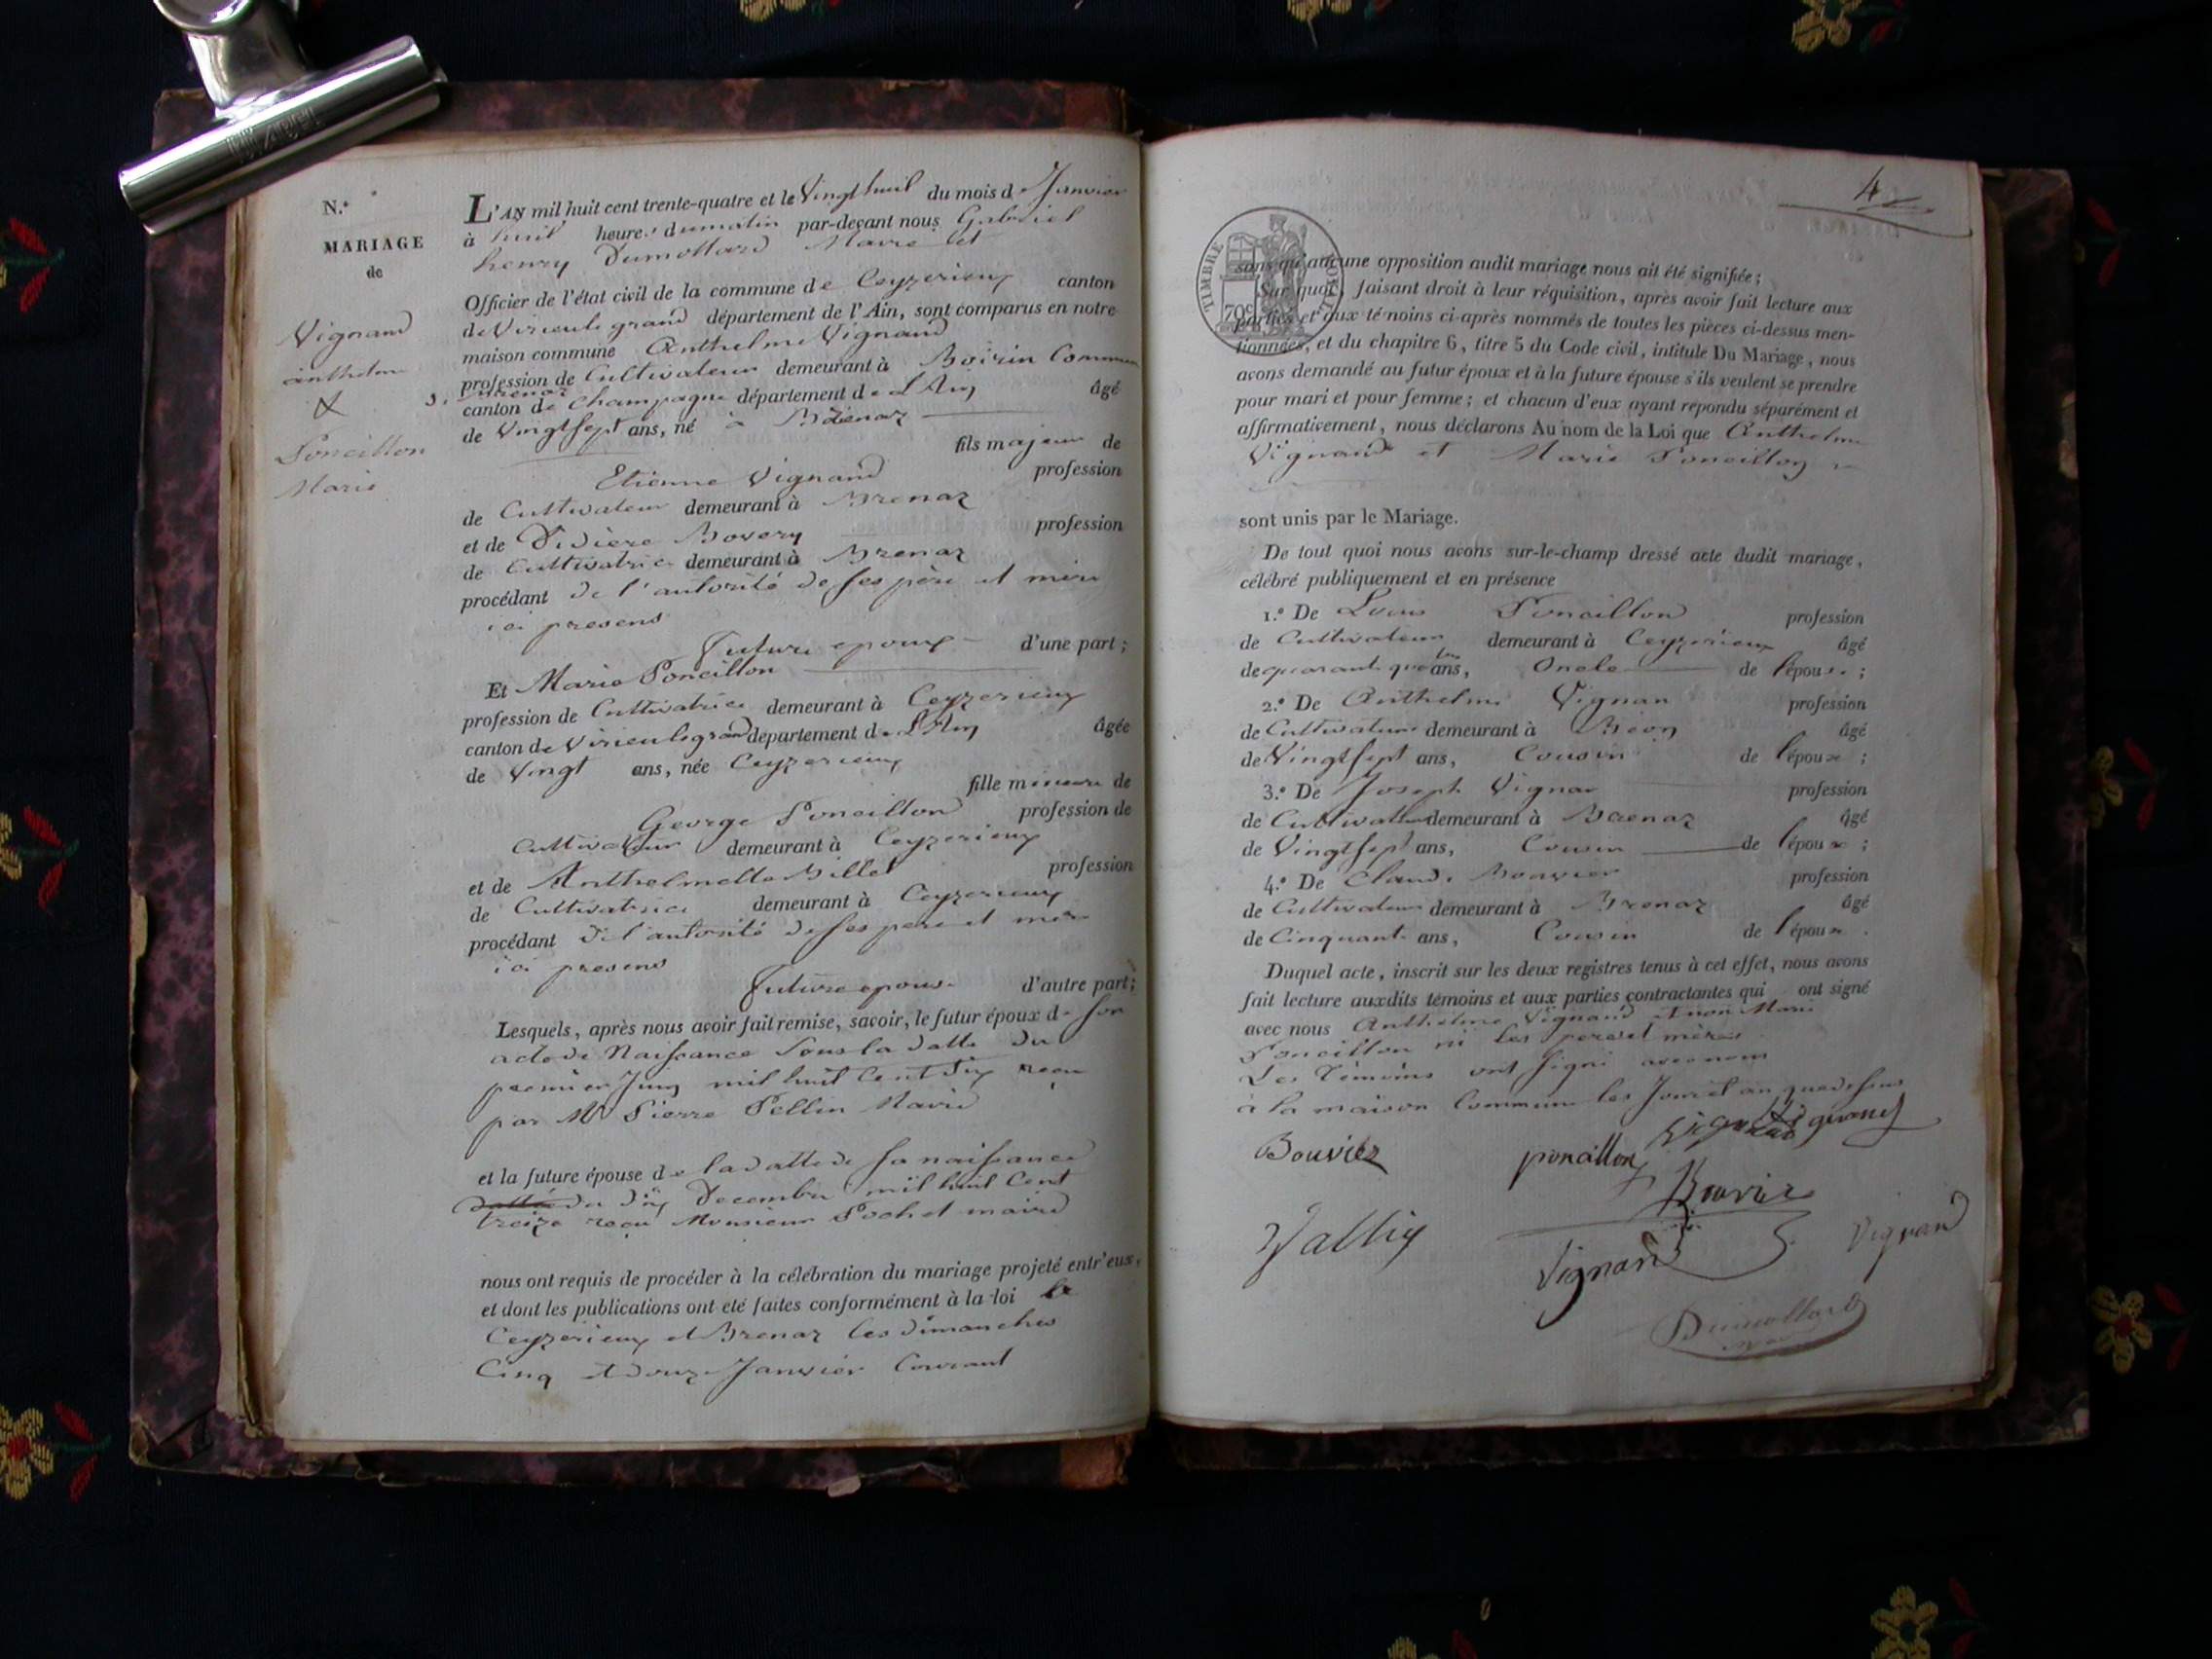 N.°
MARIAGE
de
Vignand
anthelme
&
Poncillon
Marie
L'AN mil huit cent trente-quatre et le Vingt huit du mois de Janvier
à huit heures du matin par-devant nous Gabriel
henry Dumollard Maire et
Officier de l'état civil de la commune de Ceyzerieux canton
de Virieu le grand département de l'Ain, sont comparus en notre
maison commune Anthelme Vignand
profession de Cultivateur demeurant à Boirin Commune
de Brenaz
canton de Champagne département de L'Ain âgé
de Vingt sept ans, né à Brénaz
fils majeur de
Etienne Vignand profession
de Cultivateur demeurant à Brenaz
et de Didière Bovery profession
de Cultivatrice demeurant à Brenaz
procédant de l'autorité de ses père et mère
ici presens
Futur epoux d'une part;
Et Marie Poncillon
profession de Cultivatrice demeurant à Ceyzerieux
canton de Virieu le grand département de L'Ain âgée
de Vingt ans, née Ceyzerieux
fille mineure de
George Poncillon profession de
Cultivateur demeurant à Ceyzerieux
et de Anthelmette Billet profession
de Cultivatrice demeurant à Ceyzerieux
procédant de l'autorité de ses pere et mere
ici presens
Future epouse d'autre part;
Lesquels, après nous avoir fait remise, savoir, le futur époux de son
acte de Naissance Sous la datte du
premier Juin mil huit Cent Six reçu
par Mr Pierre Pellin Maire
et la future épouse de la datte de sa naissance
dattée du dix Decembre mil huit Cent
treize reçu Monsieur Pochet maire
nous ont requis de procéder à la célébration du mariage projeté entr'eux,
et dont les publications ont été faites conformément à la loi
Ceyzerieux et Brenaz les dimanches
Cinq et douze Janvier Courant
4
TIMBRE ROYAL
70c
sans qu'aucune opposition audit mariage nous ait été signifiée;
Sur quoi, faisant droit à leur réquisition, après avoir fait lecture aux
parties et aux témoins ci-après nommés de toutes les pièces ci-dessus men-
tionnées, et du chapitre 6, titre 5 du Code civil, intitulé Du Mariage, nous
avons demandé au futur époux et à la future épouse s'ils veulent se prendre
pour mari et pour femme; et chacun d'eux ayant répondu séparément et
affirmativement, nous déclarons Au nom de la Loi que Anthelme
Vignand et Marie Poncillon
sont unis par le Mariage.
De tout quoi nous avons sur-le-champ dressé acte dudit mariage,
célébré publiquement et en présence
1.° De Louis Poncillon profession
de Cultivateur demeurant à Ceyzerieux âgé
de quarante quatre ans, Oncle de l'épouse;
2.° De Anthelme Vignan profession
de Cultivateur demeurant à Béon âgé
de Vingt sept ans, Cousin de l'époux;
3.° De Joseph Vignan profession
de Cultivateur demeurant à Brenaz âgé
de Vingt sept ans, Cousin de l'époux;
4.° De Claude Bouvier profession
de Cultivateur demeurant à Brenaz âgé
de Cinquante ans, Cousin de l'époux.
Duquel acte, inscrit sur les deux registres tenus à cet effet, nous avons
fait lecture auxdits témoins et aux parties contractantes qui ont signé
avec nous Anthelme Vignand et non Marie
Poncillon ni les pere et mères
Les Témoins ont signé avec nous
à la maison Commune les Jour et an que dessus
Bouvier poncillon
Bouvier
Vallin Vignand Vignand
Dumollard